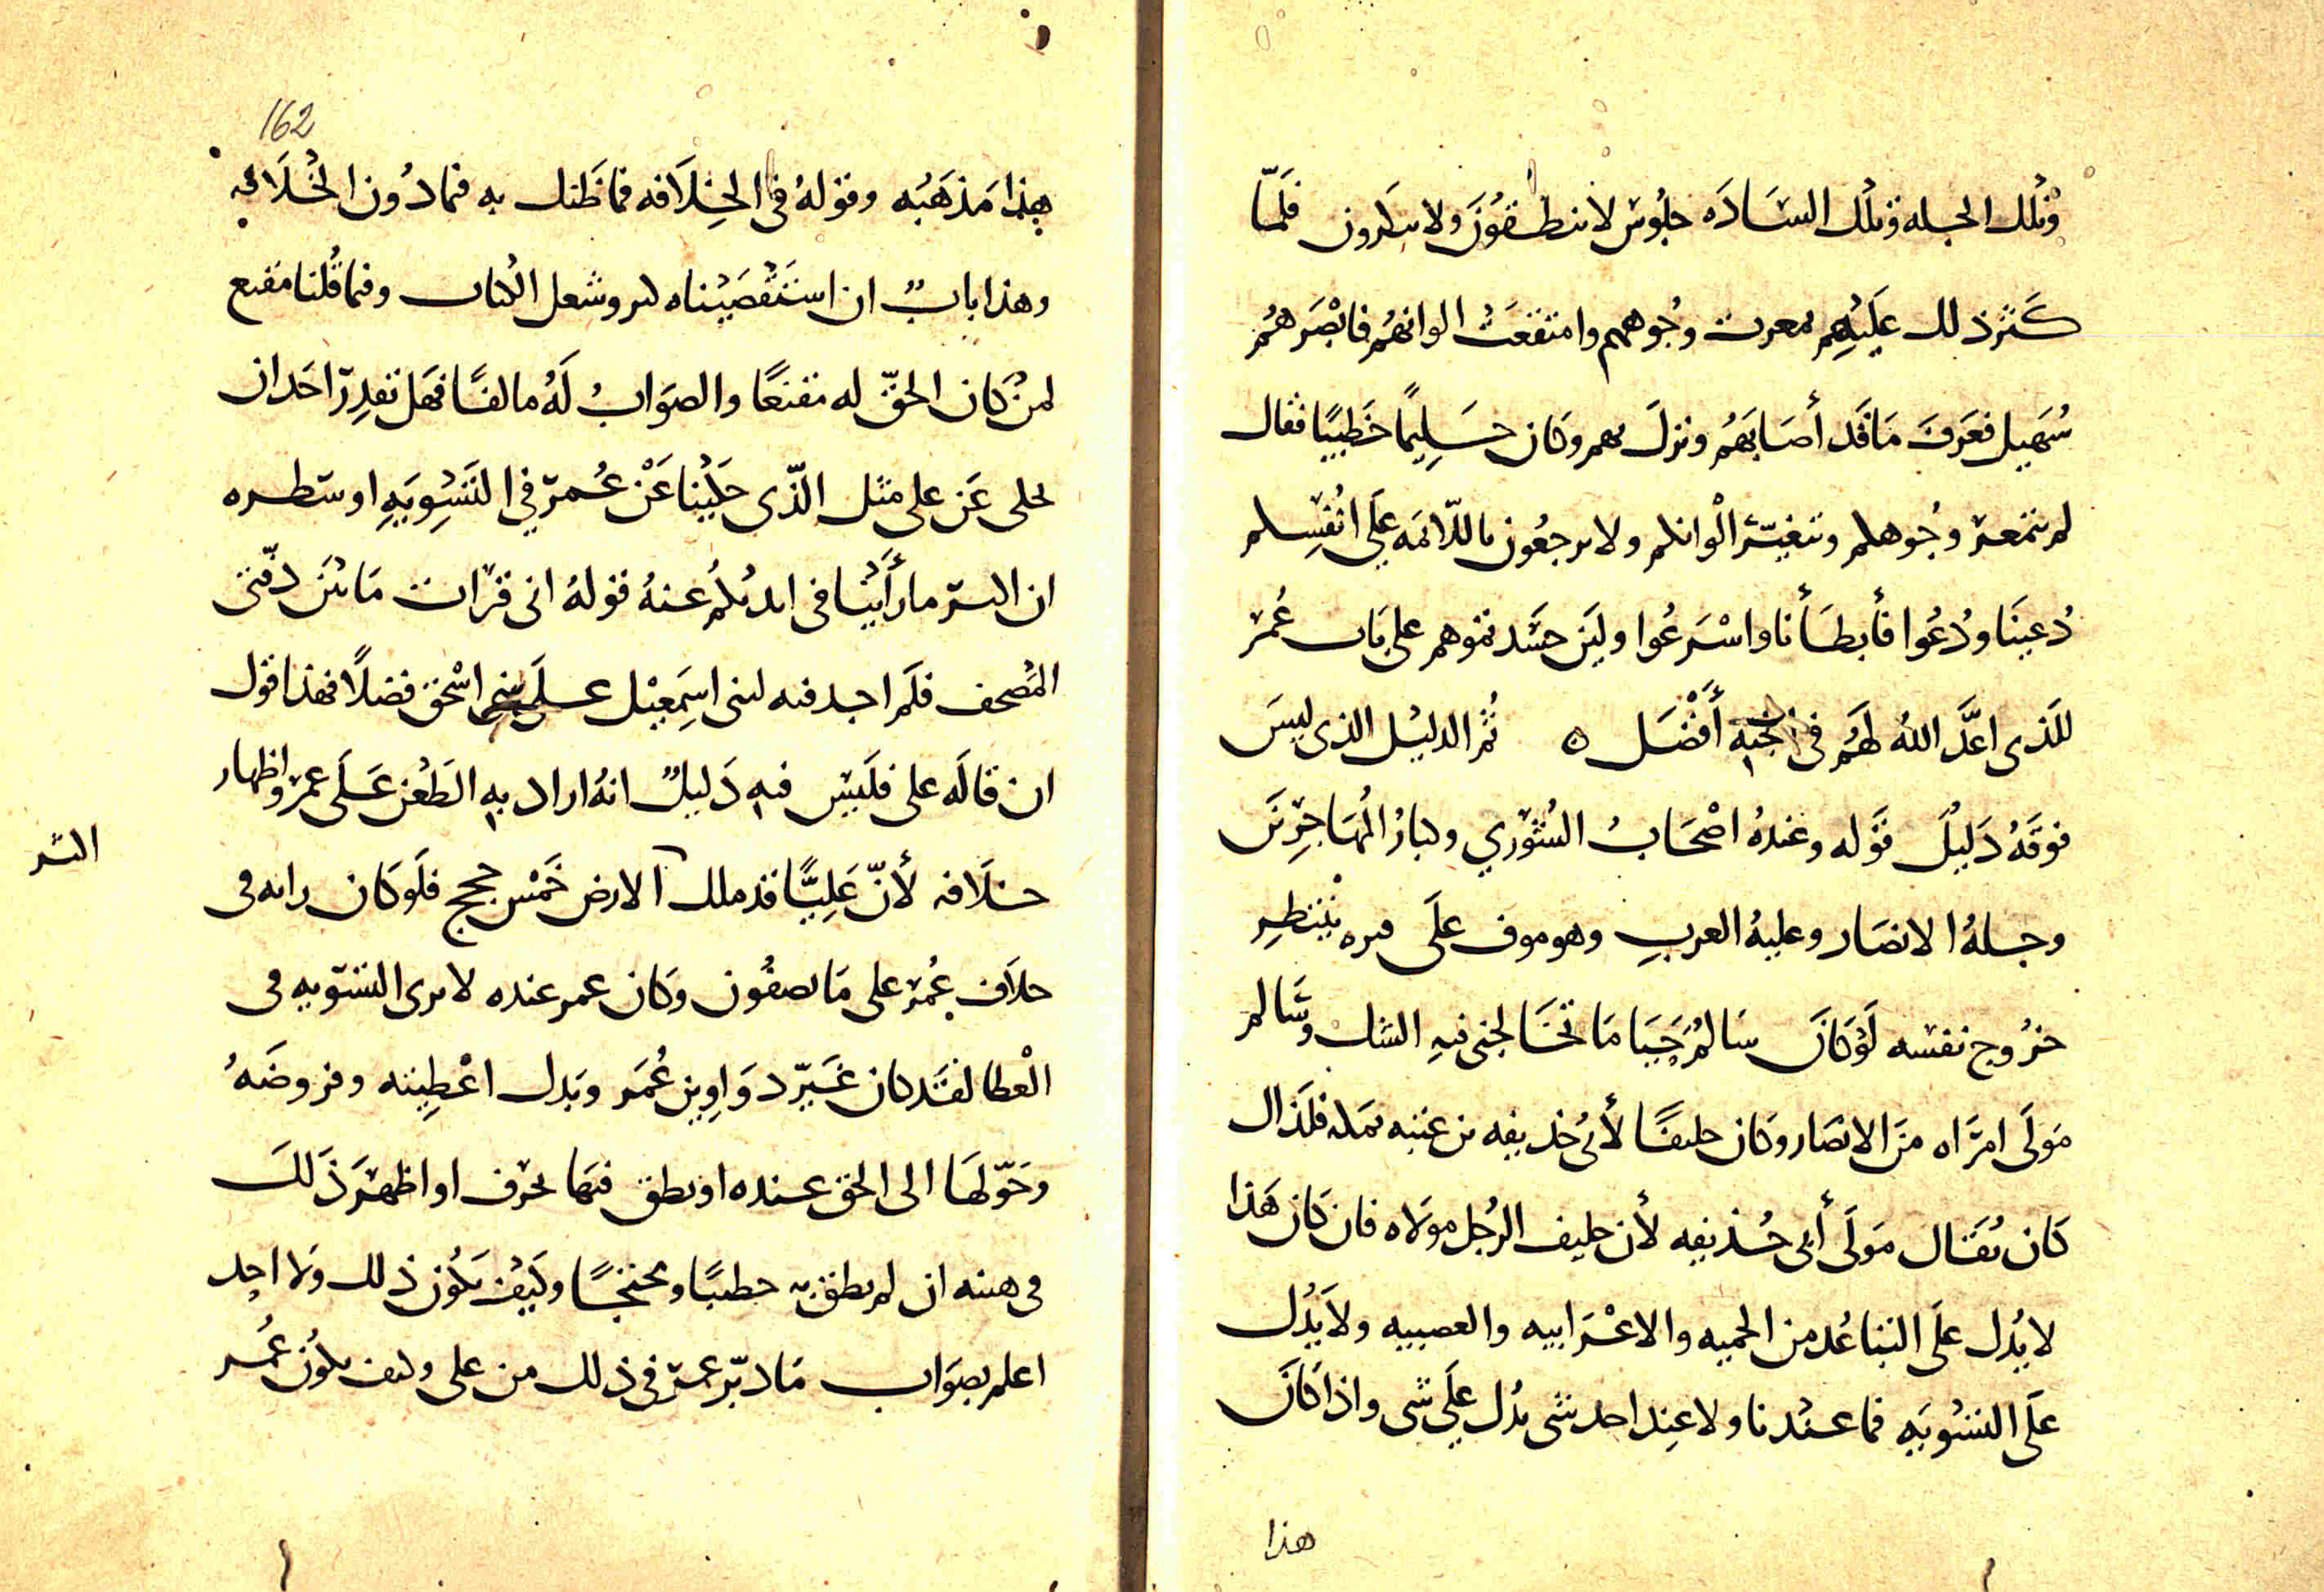 وتلك الجله وتلك الساده جلوس لا ينطقون ولا ينكرون فلما
كثر ذلك عليهم تمعرت وجوههم وامتقعت الوانهم فابصرهم
سهيل فعرف ما قد أصابهم ونزل بهم وكان حليما خطيبا فقال
لم تتمعر وجوهكم وتتغير الوانكم ولا ترجعون باللائمه على انفسكم
دعينا ودعوا فأبطأنا واسرعوا ولين حسدتموهم على باب عمر
للذى اعدّ الله لهم فى الجنه أفضل ه ثم الدليل الذى ليس
فوقه دليل قوله وعنده اصحاب الشورى وكبار المهاجرين
وجله الانصار وعليه العرب وهو موف على قبره ينتظر
خروج نفسه لو كان سالم حيا ما تخالجنى فيه الشك وسالم
مولى امراه من الانصار وكان حليفا لأبى حذيفه بن عتبه بمكه فلذلك
كان يقال مولى أبى حذيفه لأن حليف الرجل مولاه فان كان هذا
لا يدل على التباعد من الحميه والاعرابيه والعصبيه ولا يدل
على التسويه فما عندنا ولا عند احد شى يدل على شى واذا كان
هذا
162
هذا مذهبه وقوله فى الخلافه فما ظنك به فيما دون الخلافه
وهذا باب ان استقصيناه كثر وشغل الكتاب وفيما قلنا مقنع
لمن كان الحق له مقنعا والصواب له مالفا فهل تقدر احد ان
يحكى عن على مثل الذى حكينا عن عمر فى التسويه او شطره
ان اكثر ما رأينا فى ايديكم عنه قوله انى قرات ما بين دفتى
المصحف فلم اجد فيه لبنى اسمعيل على بنى اسحق فضلا فهذا قول
ان قاله على فليس فيه دليل انه اراد به الطعن على عمر واظهار
خلافه لأنّ عليّا قد ملك الارض خمس حجج فلو كان رايه فى
خلاف عمر على ما تصفون وكان عمر عنده لا يرى التسويه فى
العطا لقد كان غيّر دواوين عمر وبدل اعطيته وفروضه
وحوّلها الى الحق عنده او نطق فيها بحرف او اظهر ذلك
فى هيئه ان لم ينطق به خطيبا ومحتجا وكيف يكون ذلك ولا احد
اعلم بصواب ما دبّر عمر فى ذلك من على وكيف يكون عمر